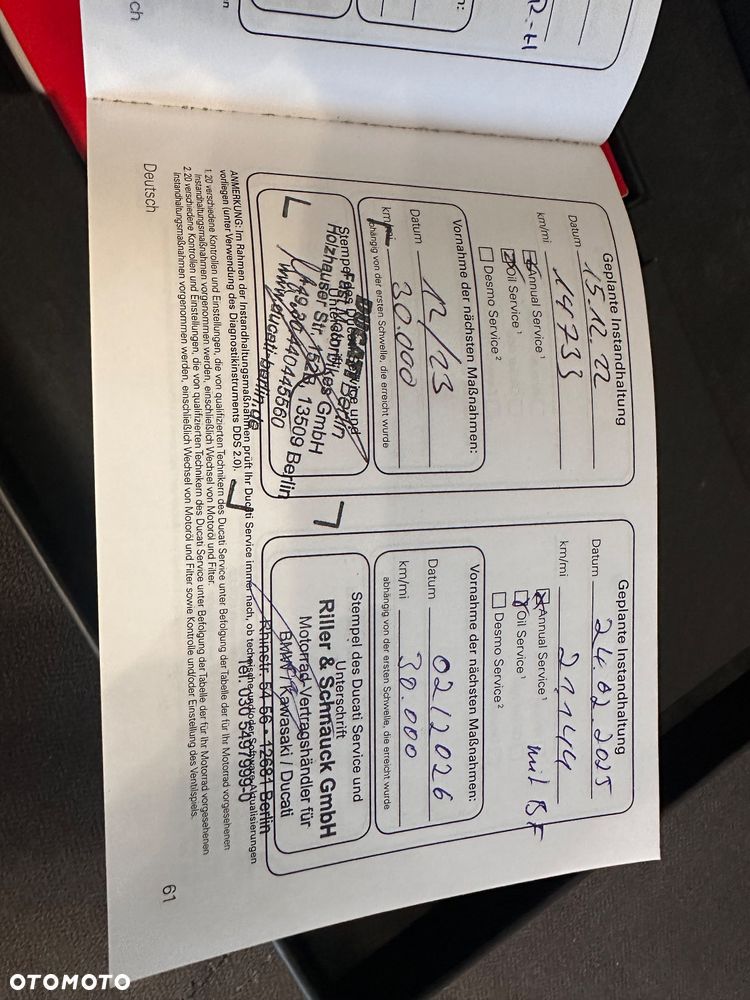 Geplante Instandhaltung
Datum 15.12.22
km/mi 14733
Annual Service¹
Oil Service¹
Desmo Service²
Vornahme der nächsten Maßnahmen:
Datum 12/23
km/mi 30.000
abhängig von der ersten Schwelle, die erreicht wurde
Stempel des Ducati Service und
Unterschrift
Berlin
Motorbikes GmbH
Holzhauser Str. 13509 Berlin
www.ducati-berlin.de
Geplante Instandhaltung
Datum 24.02.2025
km/mi 21.144
Annual Service¹
Oil Service¹ mit BF
Desmo Service²
Vornahme der nächsten Maßnahmen:
Datum 02/2026
km/mi 30.000
abhängig von der ersten Schwelle, die erreicht wurde
Stempel des Ducati Service und
Unterschrift
Riller & Schnauck GmbH
Motorrad-Vertragshändler für
BMW / Kawasaki / Ducati
Rhinstr. 54-56 · 12681 Berlin
ANMERKUNG: Im Rahmen der Instandhaltungsmaßnahmen prüft Ihr Ducati Service immer nach, ob technische und/oder Software-Aktualisierungen
vorliegen (unter Verwendung des Diagnostikinstruments DDS 2.0).
1.20 verschiedene Kontrollen und Einstellungen, die von qualifizierten Technikern des Ducati Service unter Befolgung der Tabelle der für Ihr Motorrad vorgesehenen
Instandhaltungsmaßnahmen vorgenommen werden, einschließlich Wechsel von Motoröl und Filter.
2.20 verschiedene Kontrollen und Einstellungen, die von qualifizierten Technikern des Ducati Service unter Befolgung der Tabelle der für Ihr Motorrad vorgesehenen
Instandhaltungsmaßnahmen vorgenommen werden, einschließlich Wechsel von Motoröl und Filter sowie Kontrolle und/oder Einstellung des Ventilspiels.
Deutsch
61
OTOMOTO